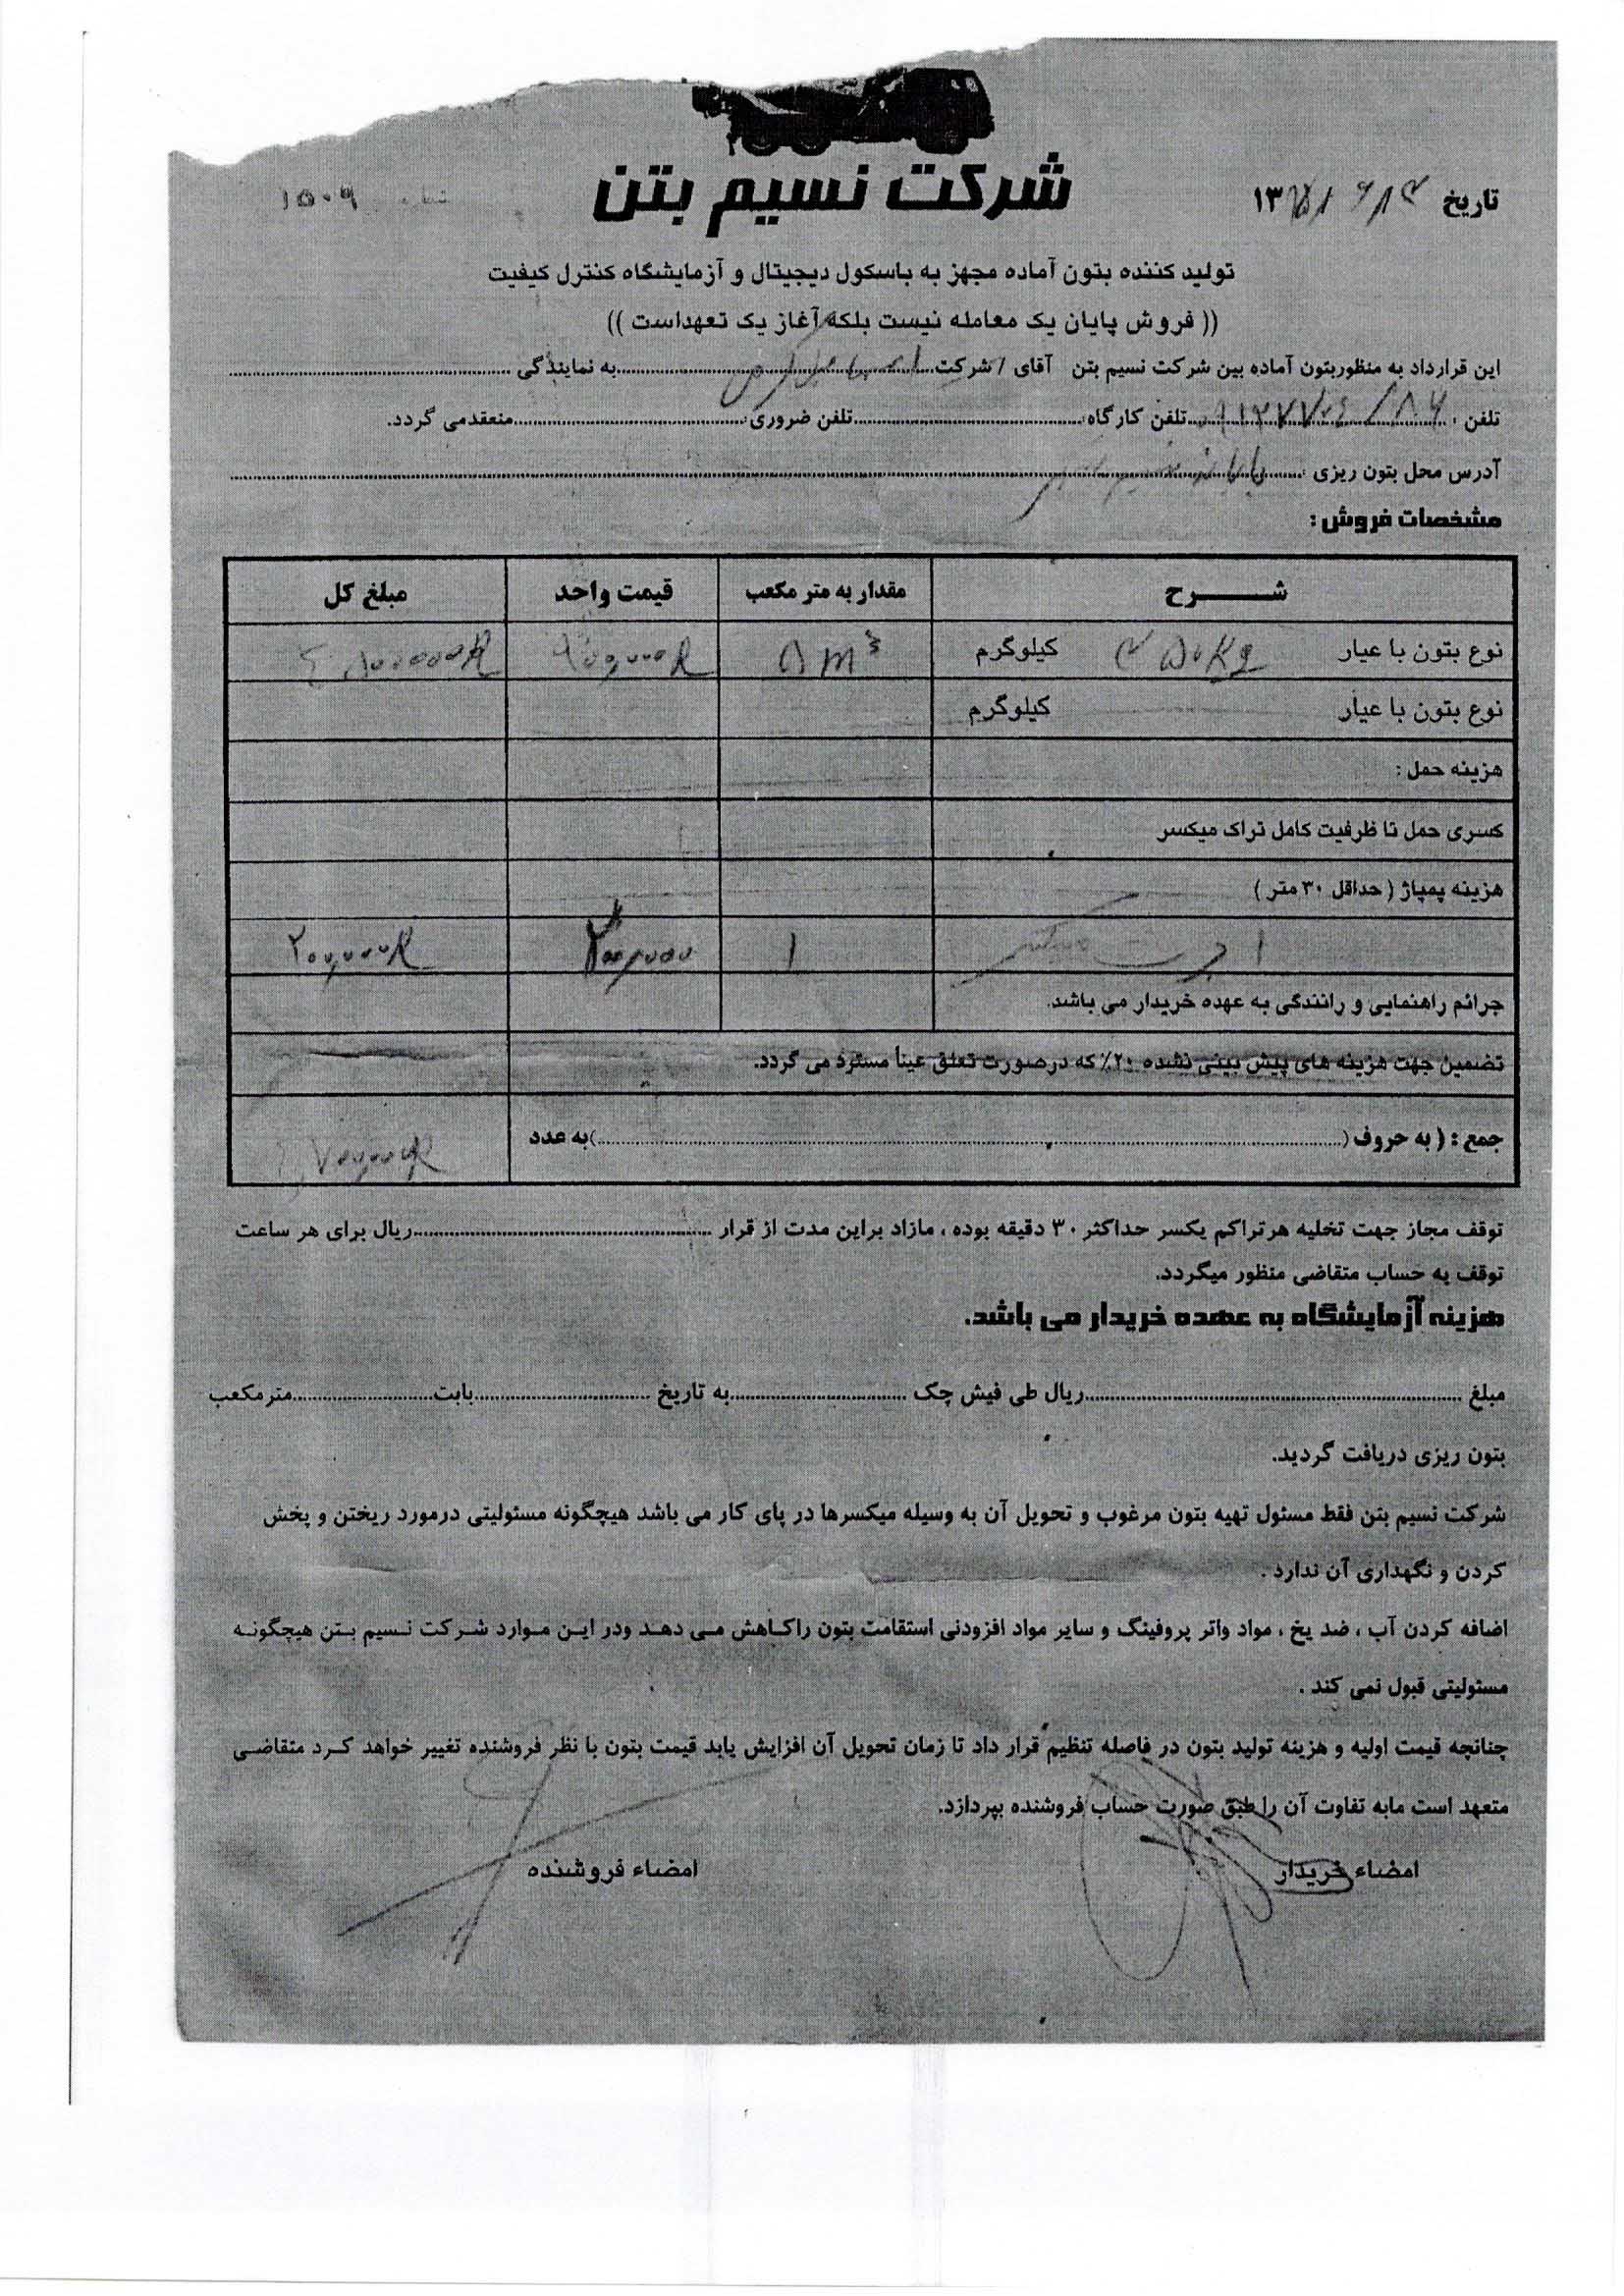 شرکت نسیم بتن
تاریخ ۱۳
۱۵۰۹
تولید کننده بتون آماده مجهز به باسکول دیجیتال و آزمایشگاه کنترل کیفیت
(( فروش پایان یک معامله نیست بلکه آغاز یک تعهداست ))
این قرارداد به منظوربتون آماده بین شرکت نسیم بتن آقای / شرکت به نمایندگی
تلفن : تلفن کارگاه: تلفن ضروری: منعقدمی گردد.
آدرس محل بتون ریزی :
مشخصات فروش :
شـــــرح مقدار به متر مکعب قیمت واحد مبلغ کل
نوع بتون با عیار ۲۵۰Kg کیلوگرم ۵m³
نوع بتون با عیار کیلوگرم
هزینه حمل :
کسری حمل تا ظرفیت کامل تراک میکسر
هزینه پمپاژ ( حداقل ۳۰ متر )
اجرت میکسر ۱ ۲۰۰,۰۰۰ ۲۰۰,۰۰۰R
جرائم راهنمایی و رانندگی به عهده خریدار می باشد.
تضمین جهت هزینه های پیش بینی نشده ۲۰٪ که درصورت تعلق عینا مسترد می گردد.
جمع : ( به حروف ( )به عدد
توقف مجاز جهت تخلیه هرتراکم یکسر حداکثر ۳۰ دقیقه بوده ، مازاد براین مدت از قرار ریال برای هر ساعت
توقف به حساب متقاضی منظور میگردد.
هزینه آزمایشگاه به عهده خریدار می باشد.
مبلغ ریال طی فیش چک به تاریخ بابت مترمکعب
بتون ریزی دریافت گردید.
شرکت نسیم بتن فقط مسئول تهیه بتون مرغوب و تحویل آن به وسیله میکسرها در پای کار می باشد هیچگونه مسئولیتی درمورد ریختن و پخش
کردن و نگهداری آن ندارد .
اضافه کردن آب ، ضد یخ ، مواد واتر پروفینگ و سایر مواد افزودنی استقامت بتون راکـاهش مـی دهـد ودر ایـن مـوارد شـرکت نـسیم بـتن هیچگونـه
مسئولیتی قبول نمی کند .
چنانچه قیمت اولیه و هزینه تولید بتون در فاصله تنظیم قرار داد تا زمان تحویل آن افزایش یابد قیمت بتون با نظر فروشنده تغییر خواهد کـرد متقاضـی
متعهد است مابه تفاوت آن را طبق صورت حساب فروشنده بپردازد.
امضاء خریدار امضاء فروشنده